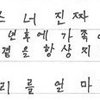 스 너 진짜
년 후에 가족
을 항상 지
리를 얼마